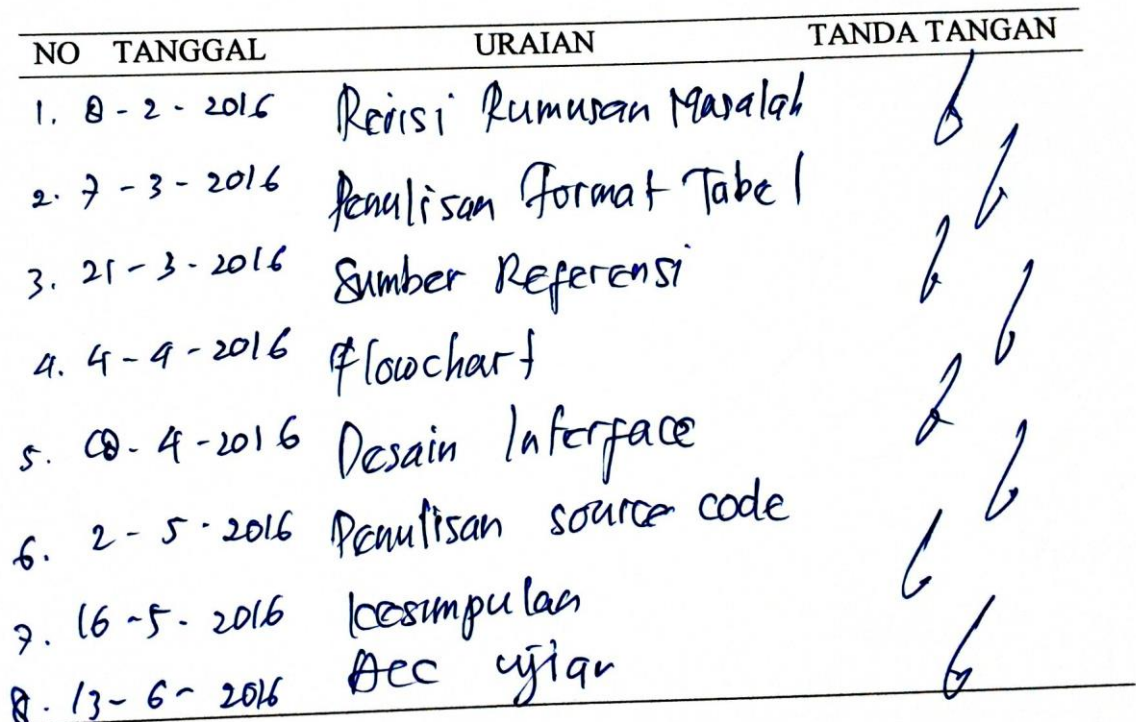 NO TANGGAL URAIAN TANDA TANGAN
1. 8 - 2 - 2016 Revisi Rumusan Masalah
2. 7 - 3 - 2016 Penulisan Format Tabel
3. 21 - 3 - 2016 Sumber Referensi
4. 4 - 4 - 2016 Flowchart
5. 18 - 4 - 2016 Desain Interface
6. 2 - 5 - 2016 Penulisan source code
7. 16 - 5 - 2016 kesimpulan
8. 13 - 6 - 2016 Acc ujian